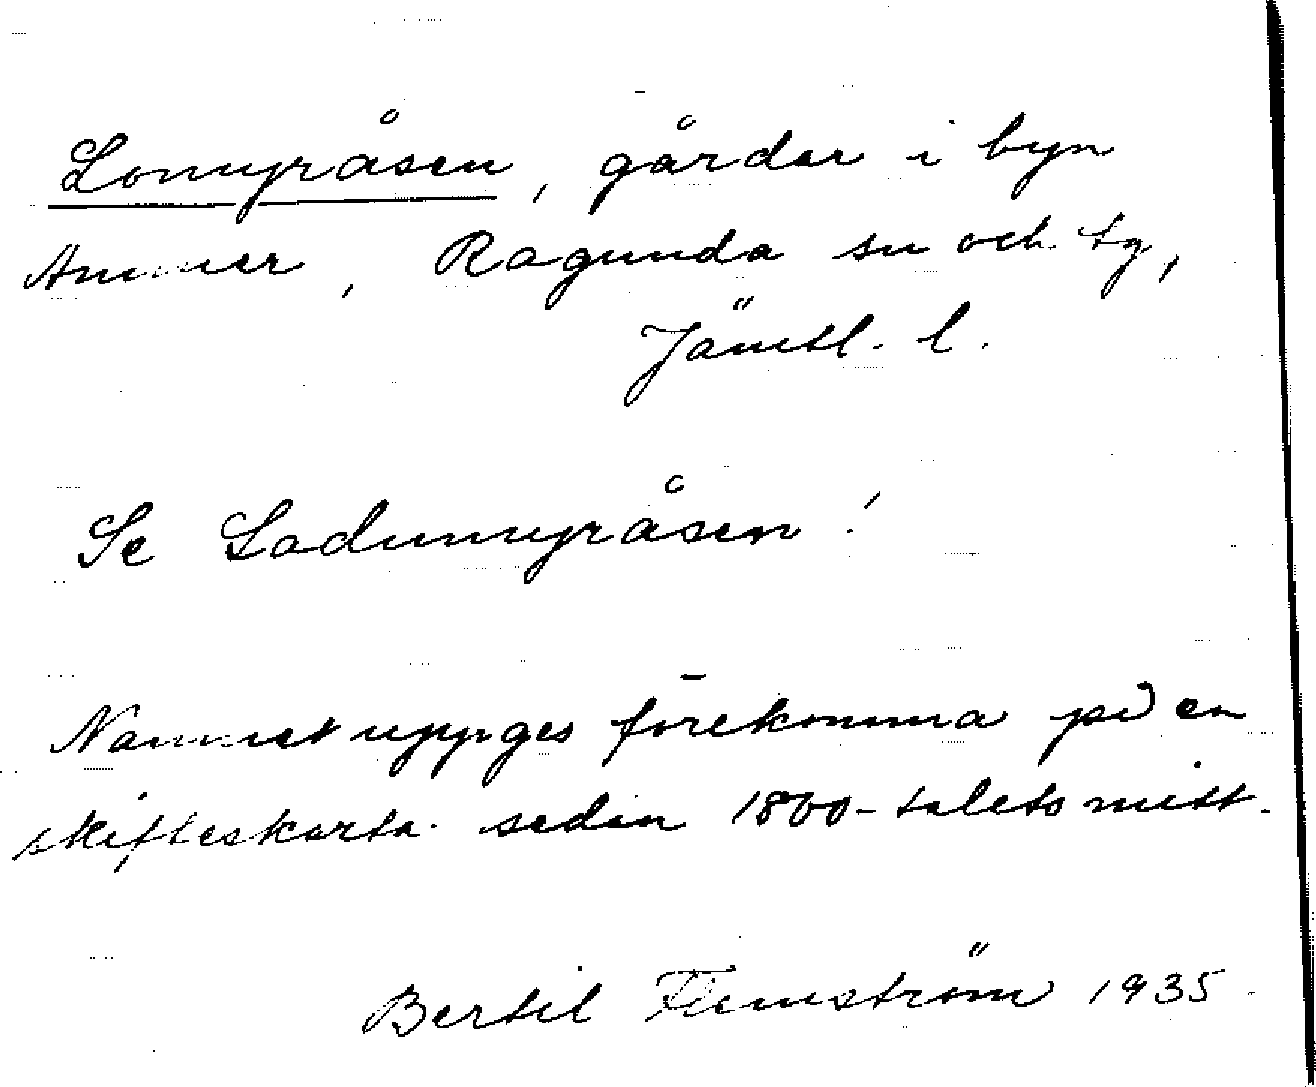 Lomyråsen, gårdar i byn
Ammer, Ragunda sn och tg,
Jämtl. l.
Se Ladumyråsen!
Namnet uppges förekomma på en
skifteskarta sedan 1800-talets mitt.
Bertil Flemström 1935